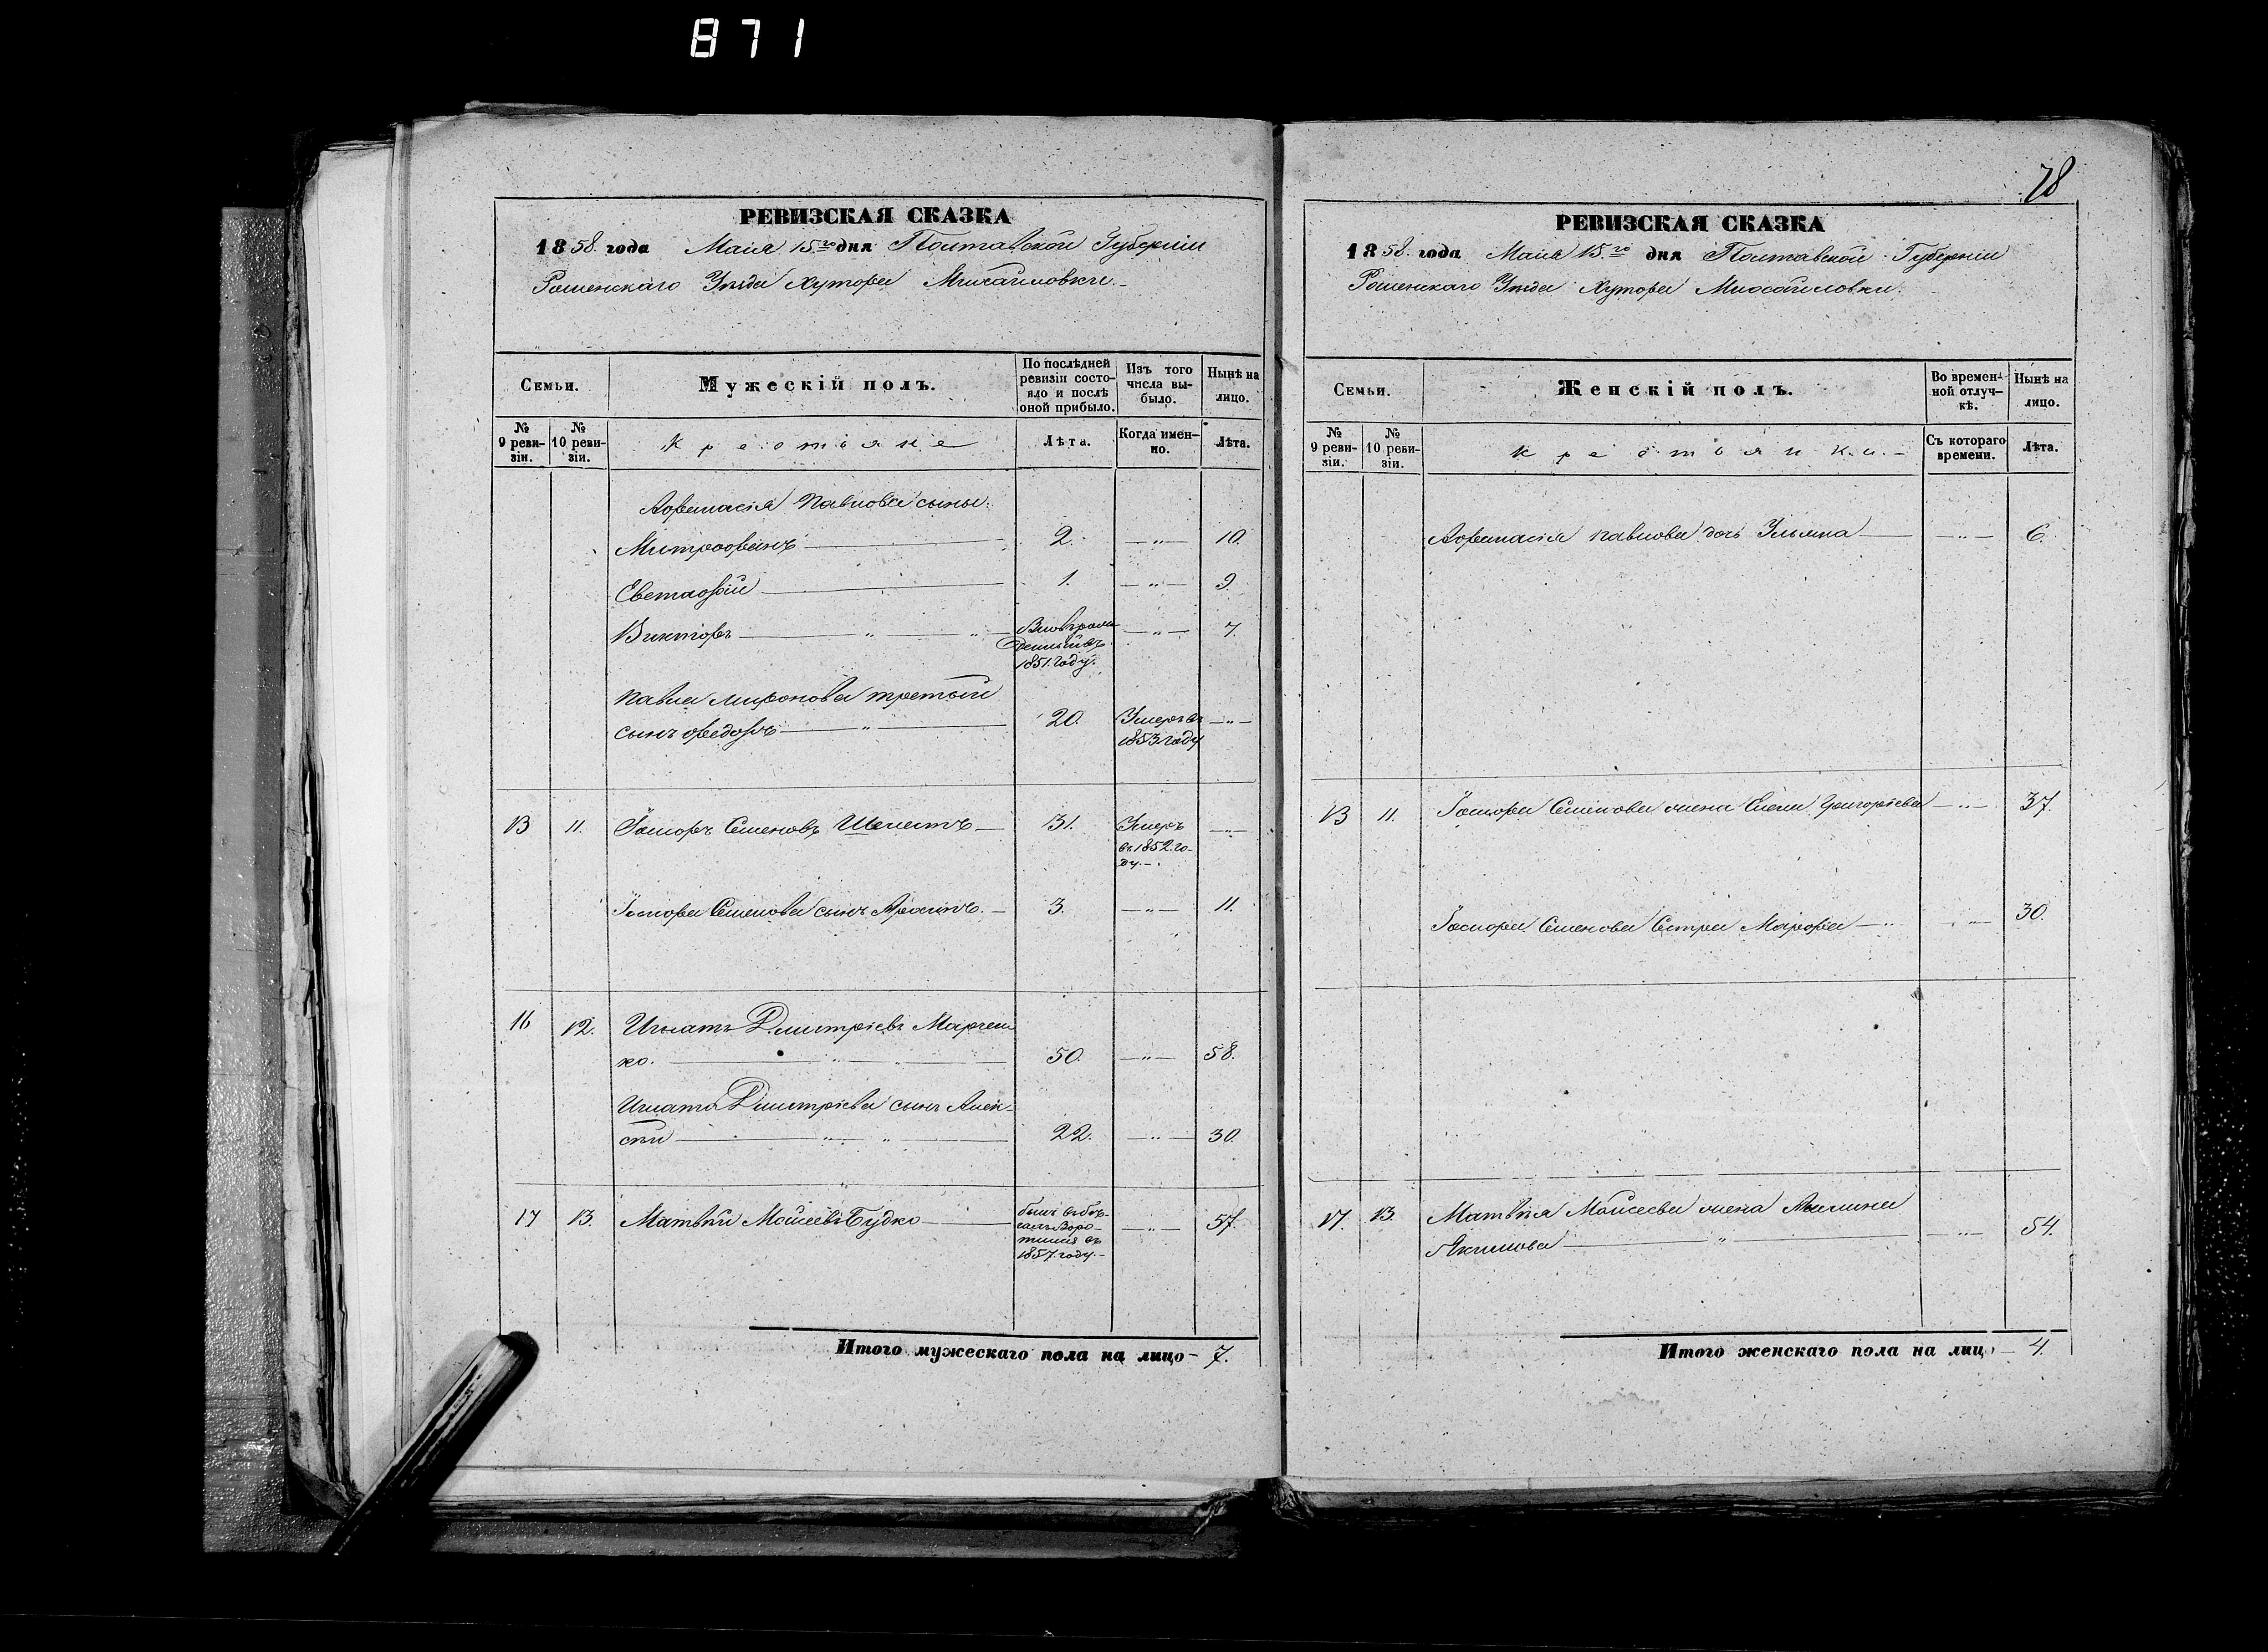 871
РЕВИЗСКАЯ СКАЗКА
1858. года Маия 15го дня Полтавской Губерніи
Роменскаго Уѣзда Хутора Михайловки.
Семьи.
Мужескій полъ.
По послѣдней ревизіи состояло и послѣ оной прибыло.
Изъ того числа выбыло.
Нынѣ на лицо.
№ 9 ревизіи.
№ 10 ревизіи.
Крестьяне
Лѣта.
Когда именно.
Лѣта.
Афанасія Павлова сыны:
Митрофанъ 2. 10.
Евстафій 1. 9.
Викторъ
1851. году. 7.
Павла Миронова третій
сынъ Федоръ 20. Умеръ въ
1853 году
13 11. Семеновъ Шелестъ 31. Умеръ
въ 1852. го-
ду.
Семенова сынъ 3. 11.
16 12. Игнатъ Дмитріевъ Марчен
ко. 50. 58.
Игната Дмитріева сынъ Алек-
сѣй 22. 30.
17 13. Матвѣй Мойсеевъ Будко былъ въ бѣ-
гахъ воро-
тился въ
1857. году. 57.
Итого мужескаго пола на лицо 7.
78
РЕВИЗСКАЯ СКАЗКА
1858. года Маия 15го дня Полтавской Губерніи
Роменскаго Уѣзда Хутора Михайловки.
Семьи.
Женскій полъ.
Во временной отлучкѣ.
Нынѣ на лицо.
№ 9 ревизіи.
№ 10 ревизіи.
Крестьянки.
Съ котораго времени.
Лѣта.
Афанасія Павлова дочь Ульяна 6.
13 11. Семенова жена Григоріева 37.
Семенова Сестра Марфа 30.
17. 13. Матвѣя Мойсеева жена
Якимова 54.
Итого женскаго пола на лицо 4.